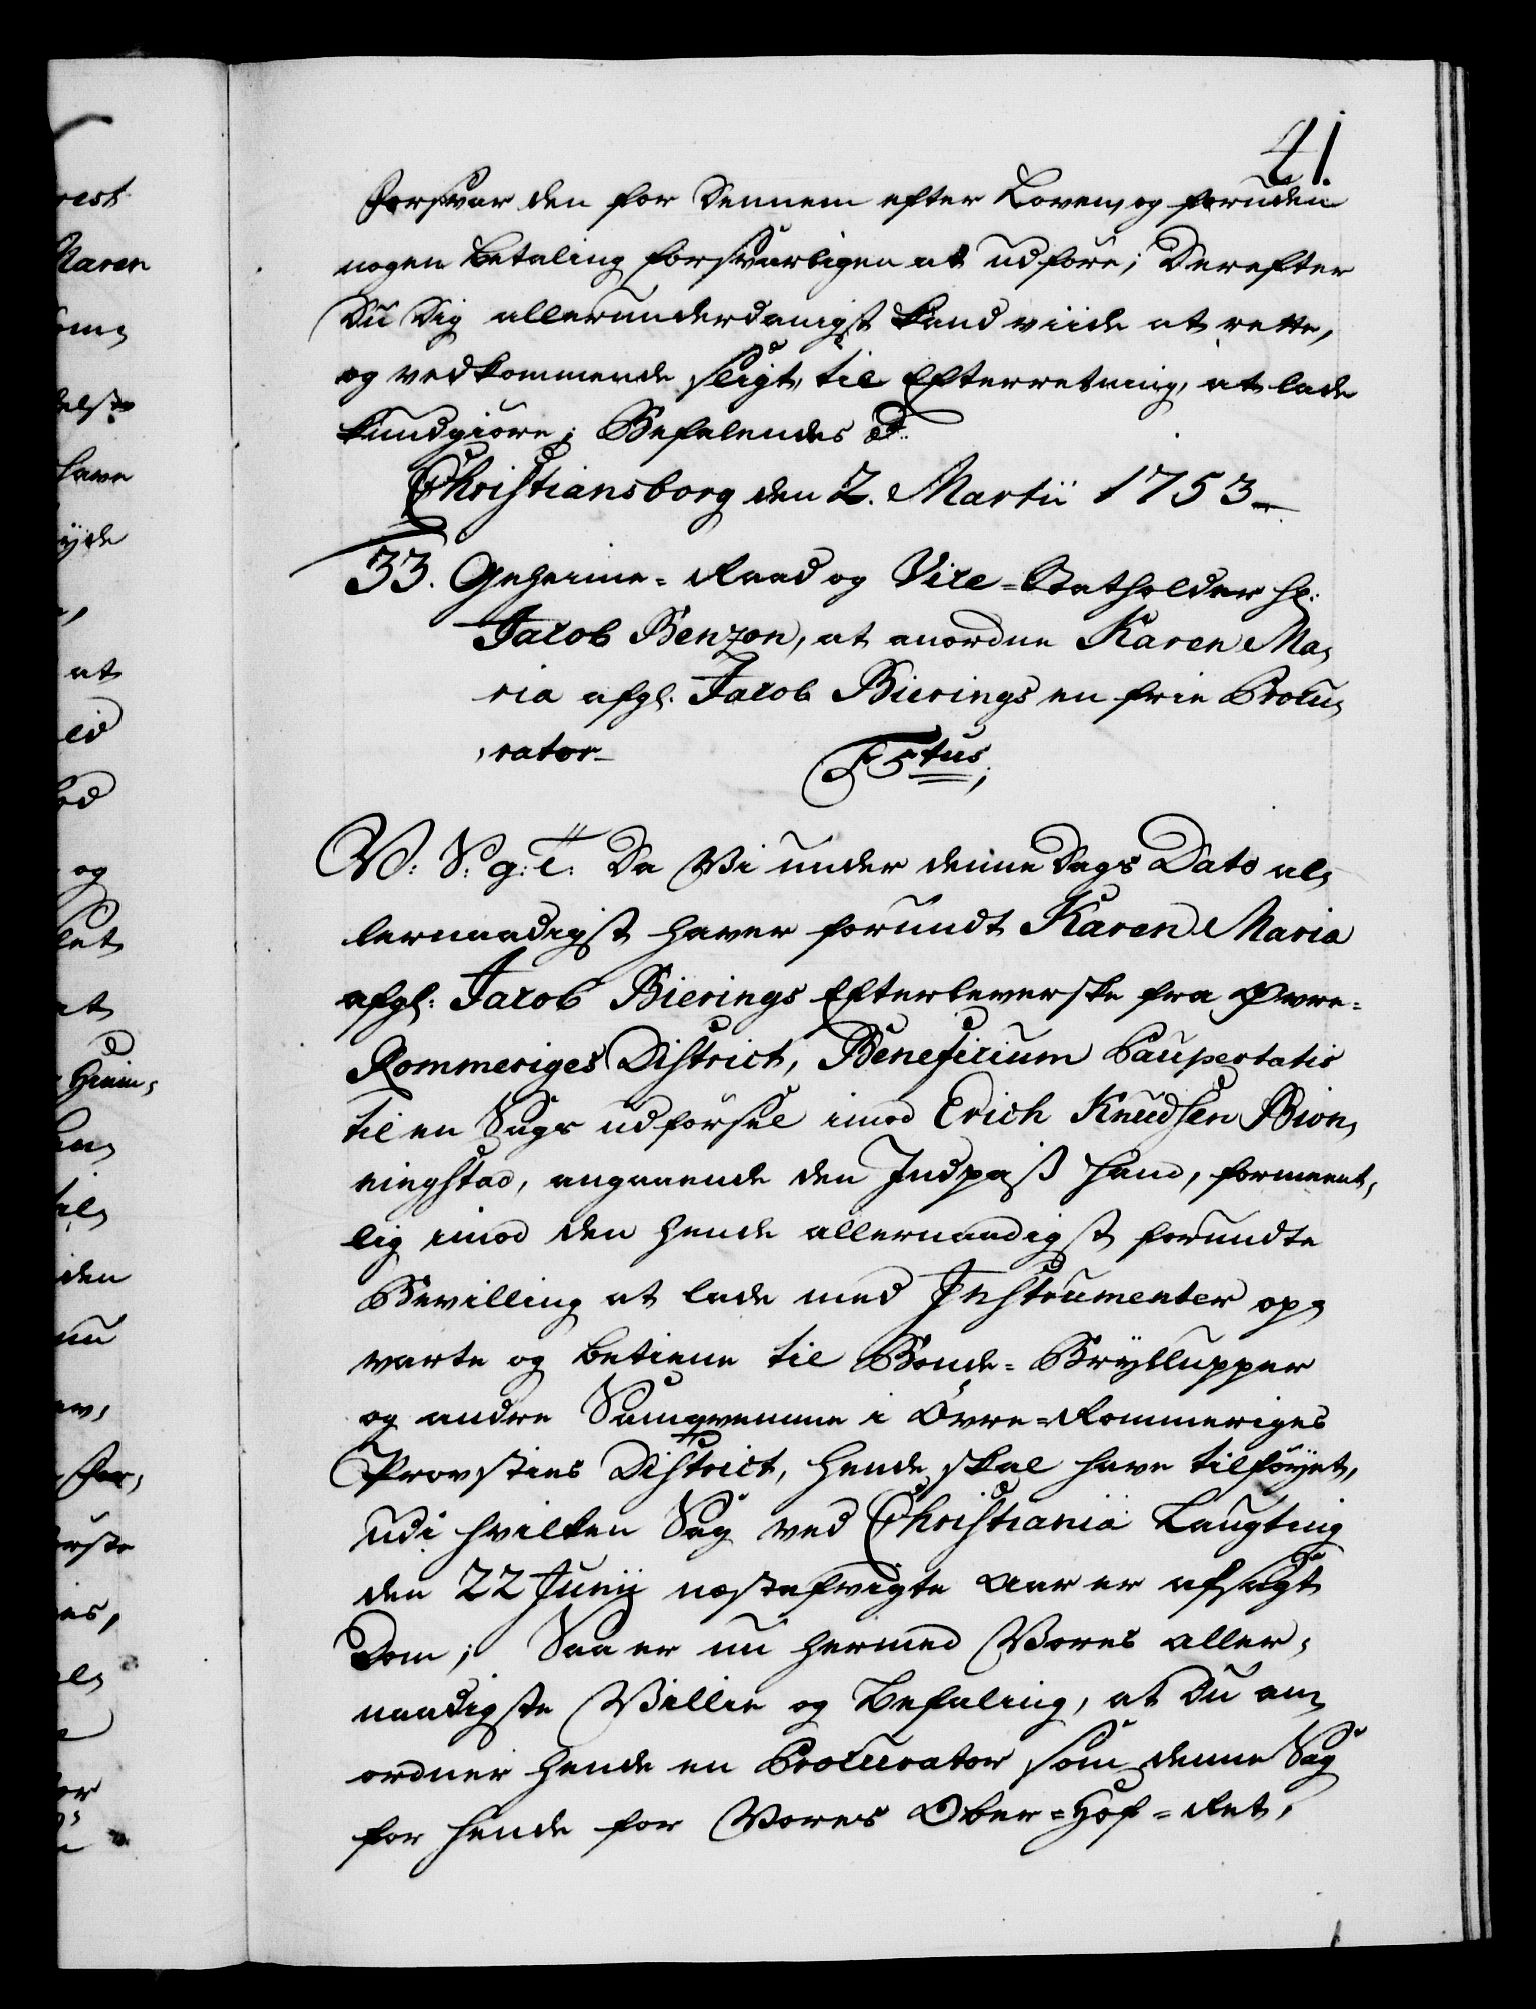 41
Forsvar den for Dennem efter Loven, og foruden
nogen betaling forsvarligen at udföre; Derefter
Du Dig allerunderdanigst kand viide at rette,
og vedkommende sligt, til Efterretning, at lade
kundgiöre; Befalendes &c.
Christiansborg den 2. Martii 1753
33. Geheime-Raad og Vice-Statholder Hr:
Jacob Benzon, at anordne Karen Ma,
ria afgl: Jacob Bierings en frie Procu,
,rator
F 5tus;
V: S: g: T: Da Vi under denne Dags Dato al,
lernaadigst haver forundt Karen Maria
afgl: Jacob Bierings Efterleverske fra Øvre-
Rommeriges District, Beneficium Paupertatis
til en Sags udförsel imod Erich Knudsen Biör,
ningstad, angaaende den Indpass hand, formeent,
lig imod den hende allernaadigst forundte
Bevilling at lade med Instrumenter op,
varte og betiene til Bonde-Bryllupper
og andre Samqvemme i Övre-Rommeriges
Provsties District, hende skal have tilföyet,
udi hvilken Sag ved Christiania Laugting
den 22 Junij næstafvigte Aar er afsagt
Dom; Saa er nu hermed Vores aller,
naadigste Villie og Befaling, at Du an,
ordner hende en Procurator som denne Sag
for hende for Vores Ober-Hof-Ret,
rest
Karen
have
at
og
den